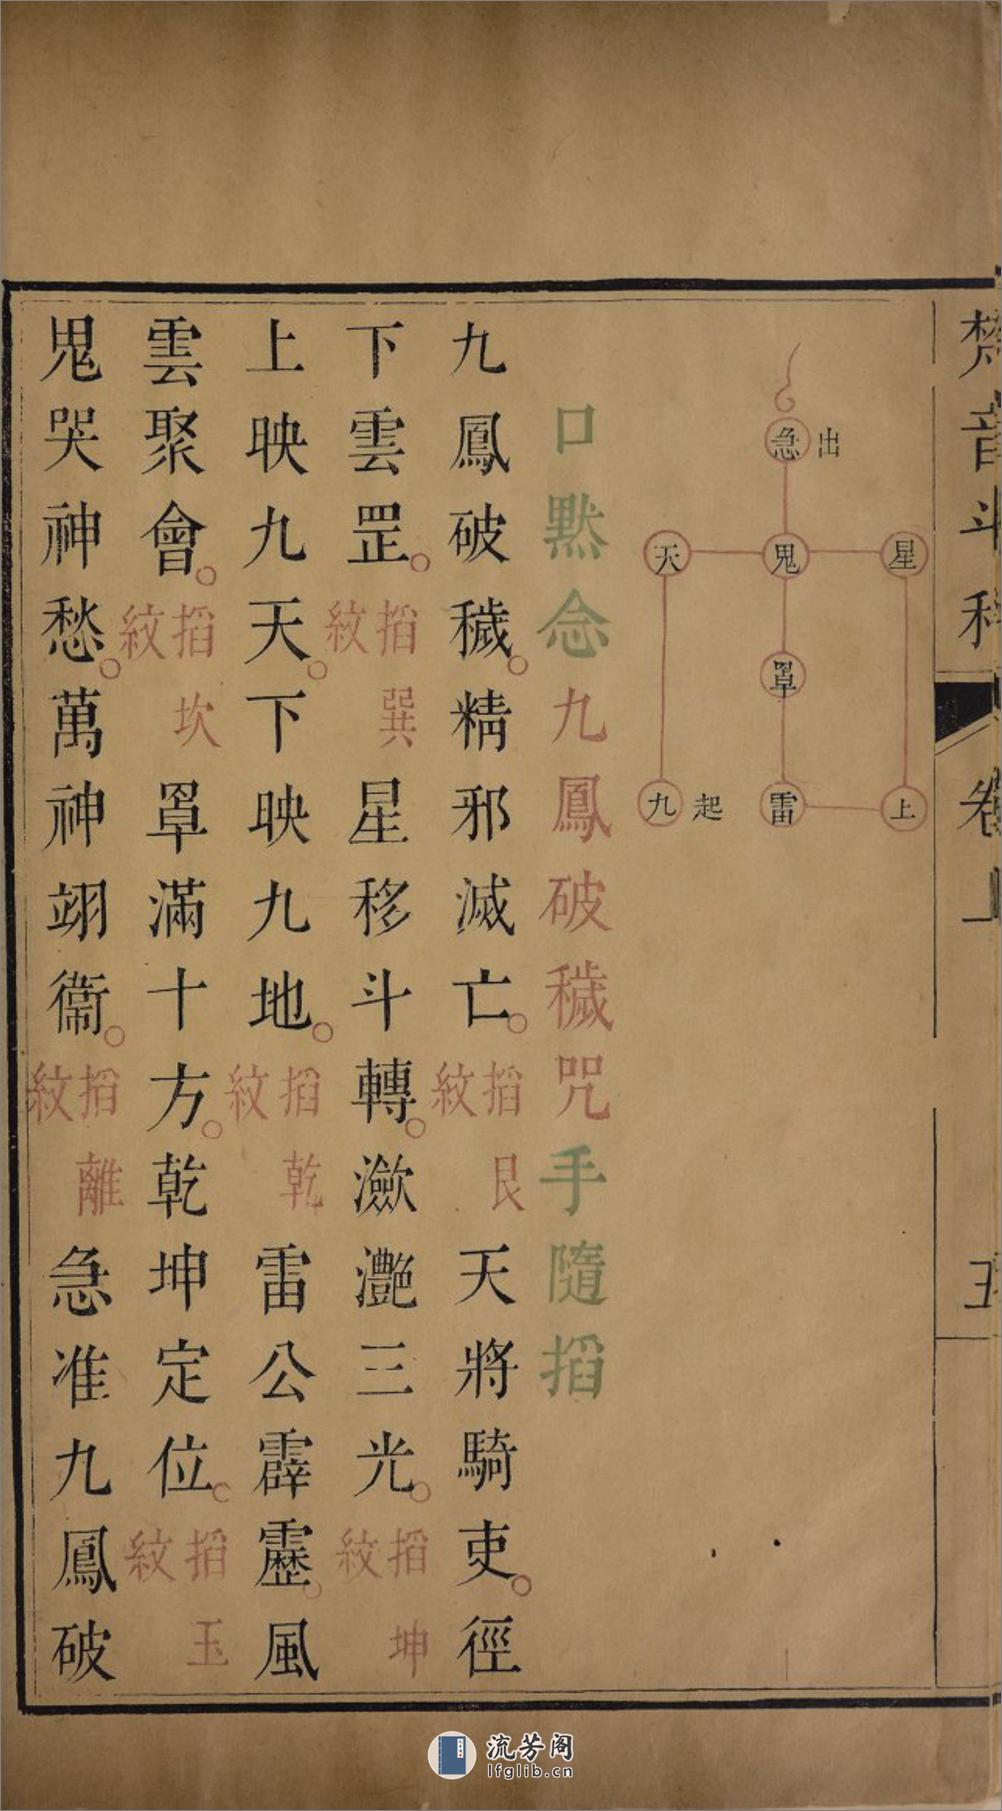 梵音斗科
卷上
五
急 出
天 鬼 星
罩
九 起 雷 上
口默念九鳳破穢咒手隨掐
九鳳破穢。精邪滅亡。掐艮紋天將騎吏。徑
下雲罡。掐巽紋星移斗轉。瀲灔三光。掐坤紋
上映九天。下映九地。掐乾紋雷公霹靂。風
雲聚會。掐坎紋罩滿十方。乾坤定位。掐玉紋
鬼哭神愁。萬神翊衞。掐離紋急准九鳳破
流芳阁
lfglib.cn